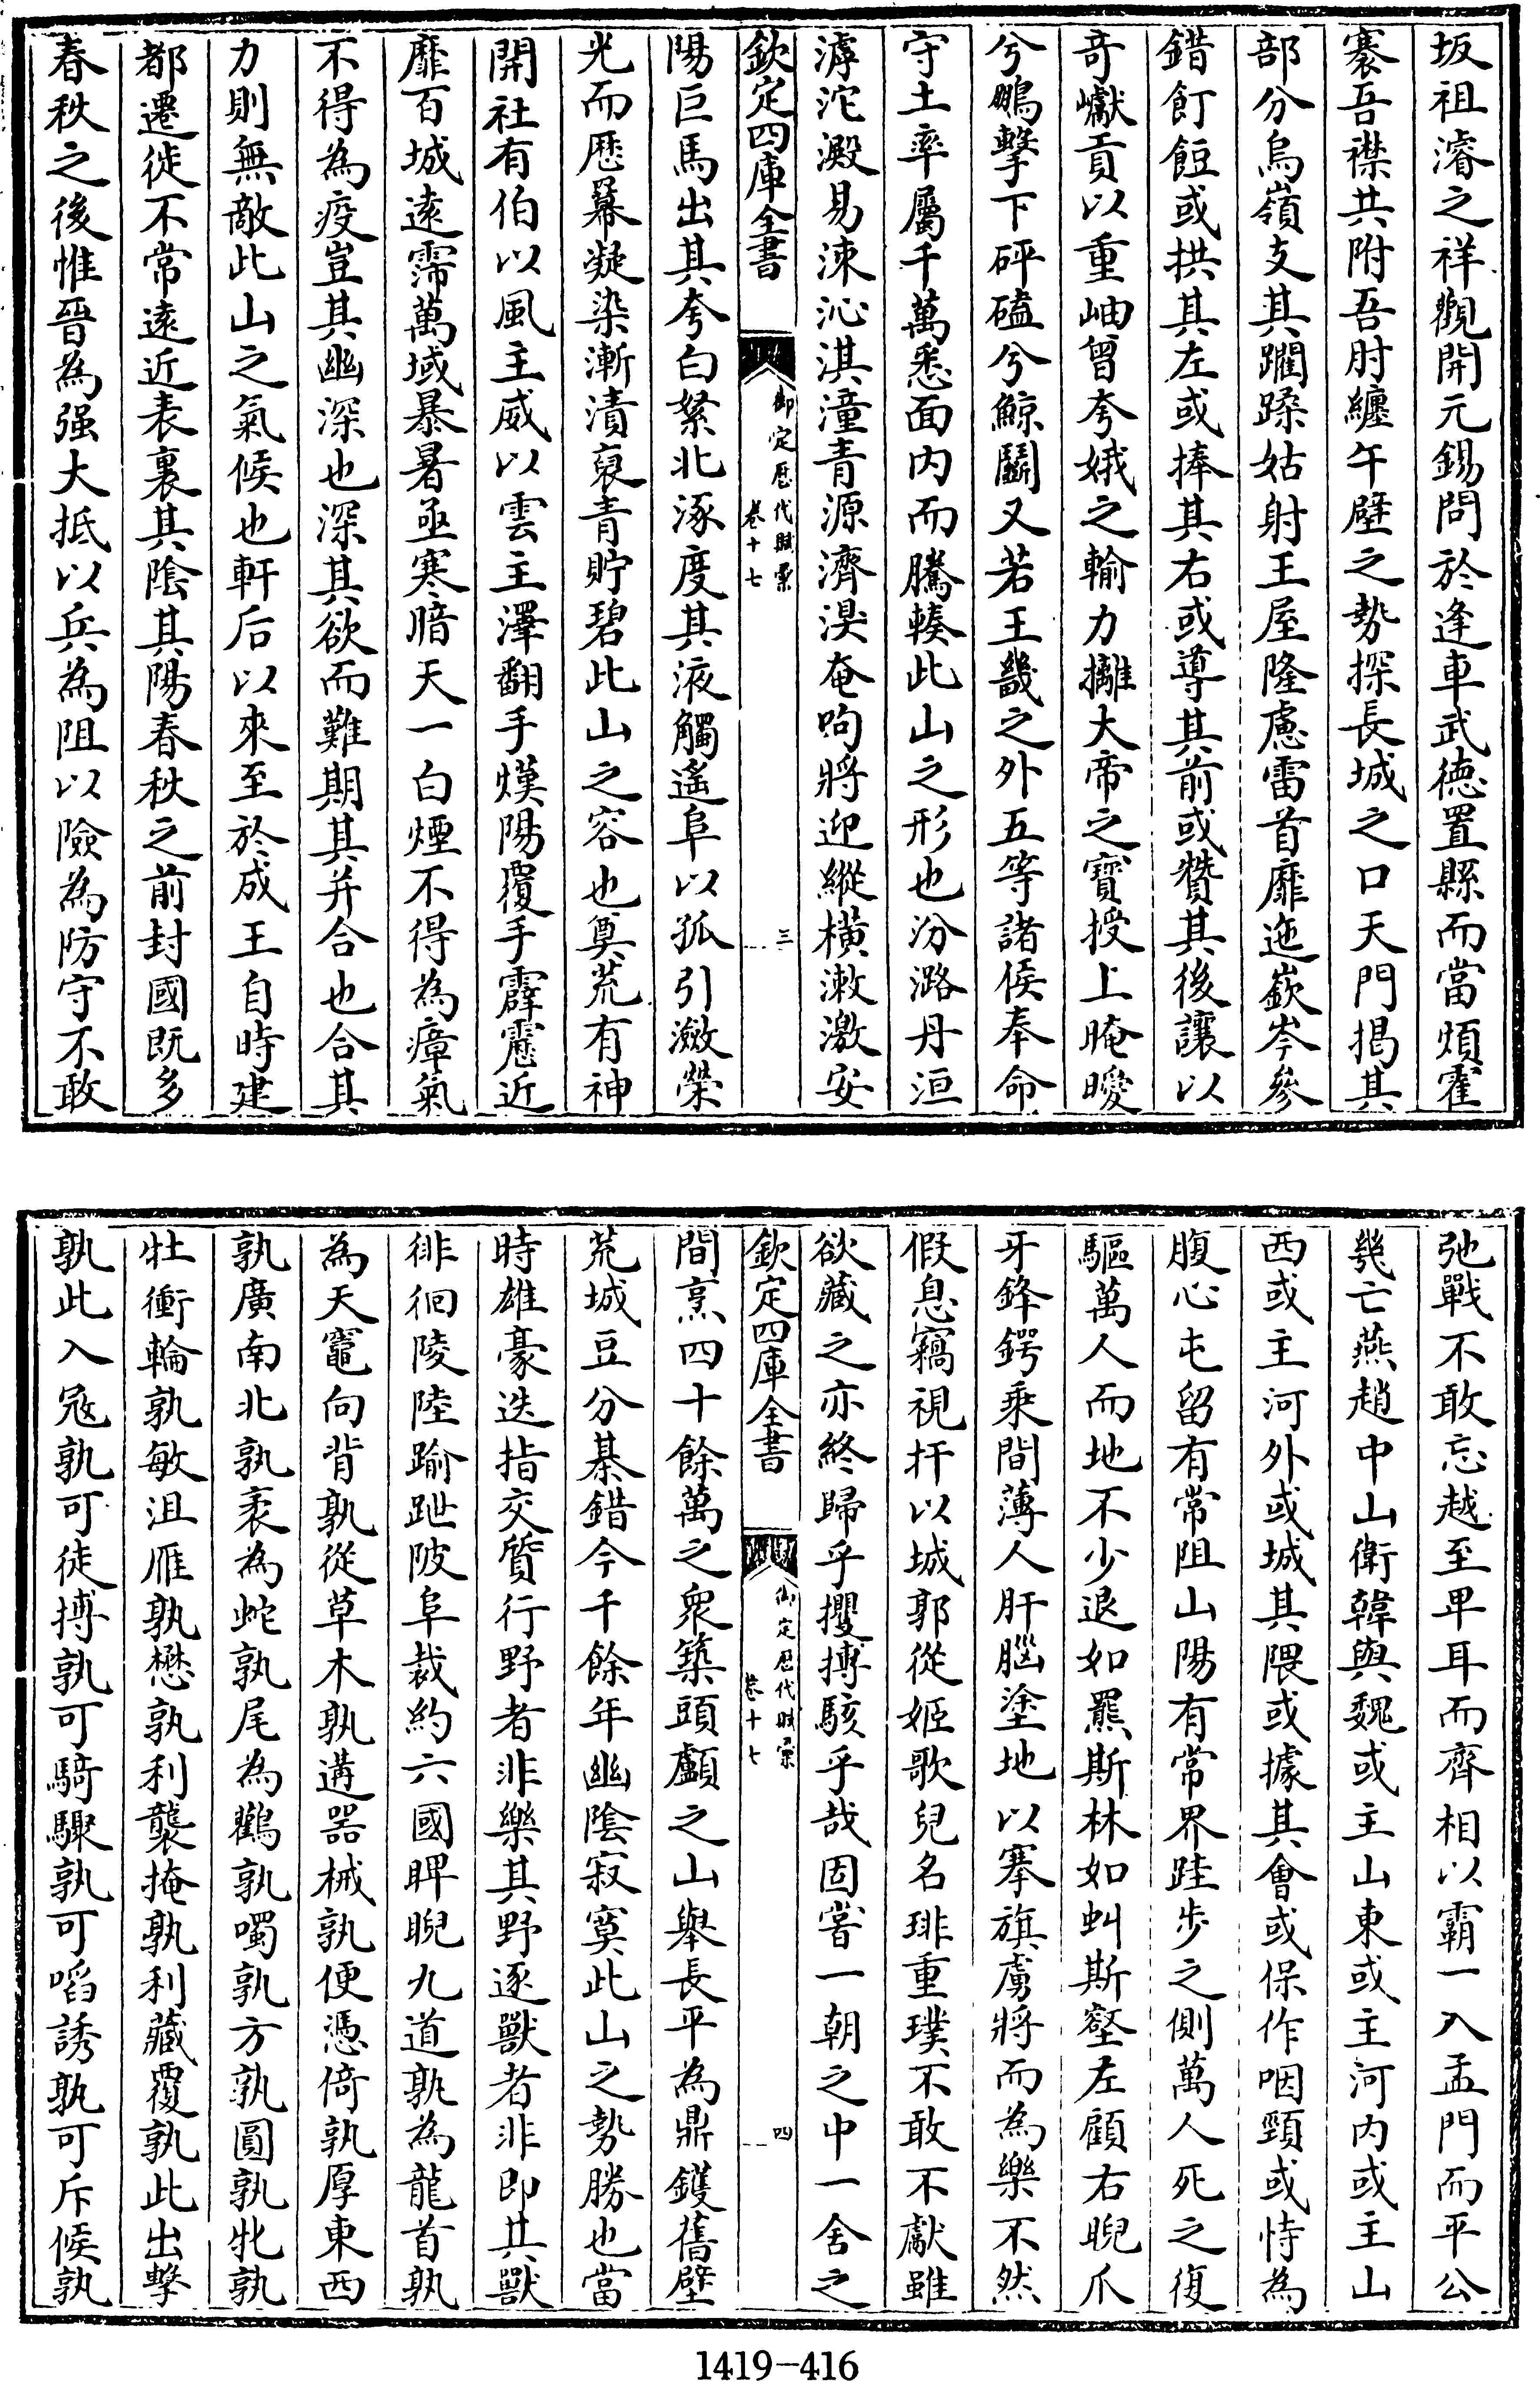 坂祖濬之祥觀開元錫問於逢車武德置縣而當煩霍
褰吾襟共附吾肘纏午壁之勢探長城之口天門揭其
部分烏嶺支其躙蹂姑射王屋隆慮雷首靡迤嶔岑參
錯飣餖或拱其左或捧其右或導其前或贊其後讓以
奇巘貢以重岫曾夸娥之輸力攡大帝之寶授上晻曖
兮鵬擊下砰磕兮鯨鬭又若王畿之外五等諸侯奉命
守土率屬千萬悉面内而騰輳此山之形也汾潞丹洹
滹沱澱易涑沁淇潼青源濟湨奄呴將迎縱横潄激安
欽定四庫全書
御定歷代賦彙
卷十七
三
陽巨馬出其夸白絮北涿度其液觸遙阜以孤引瀲榮
光而歴羃凝染漸漬裒青貯碧此山之容也奠荒有神
開社有伯以風主威以雲主澤翻手熯陽覆手霹靂近
靡百城逺霈萬域暴暑亟寒暗天一白煙不得為瘴氣
不得為疫豈其幽深也深其欲而難期其并合也合其
力則無敵此山之氣候也軒后以來至於成王自時建
都遷徙不常逺近表裏其陰其陽春秋之前封國既多
春秋之後惟晉為强大抵以兵為阻以險為防守不敢
弛戰不敢忘越至畢耳而齊相以霸一入孟門而平公
幾亡燕趙中山衛韓與魏或主山東或主河内或主山
西或主河外或城其隈或據其會或保作咽頸或恃為
腹心屯留有常阻山陽有常界跬步之側萬人死之復
驅萬人而地不少退如羆斯林如虯斯壑左顧右睨爪
牙鋒鍔乗間薄人肝腦塗地以搴旗虜將而為樂不然
假息竊視扞以城郭從姬歌兒名琲重璞不敢不獻雖
欲藏之亦終歸乎攫搏駭乎哉固嘗一朝之中一舍之
欽定四庫全書
御定歷代賦彙
卷十七
四
間烹四十餘萬之衆築頭顱之山舉長平為鼎鑊舊壁
荒城豆分棊錯今千餘年幽陰寂寞此山之勢勝也當
時雄豪迭指交質行野者非樂其野逐獸者非即其獸
徘徊陵陸踰跐陂阜裁約六國睥睨九道孰為龍首孰
為天竈向背孰從草木孰遘器械孰便憑倚孰厚東西
孰廣南北孰袤為蛇孰尾為鸛孰噣孰方孰圓孰牝孰
牡衝輪孰敏沮雁孰懋孰利襲掩孰利藏覆孰此出擊
孰此入冦孰可徒搏孰可騎驟孰可㗖誘孰可斥候孰
1419-416